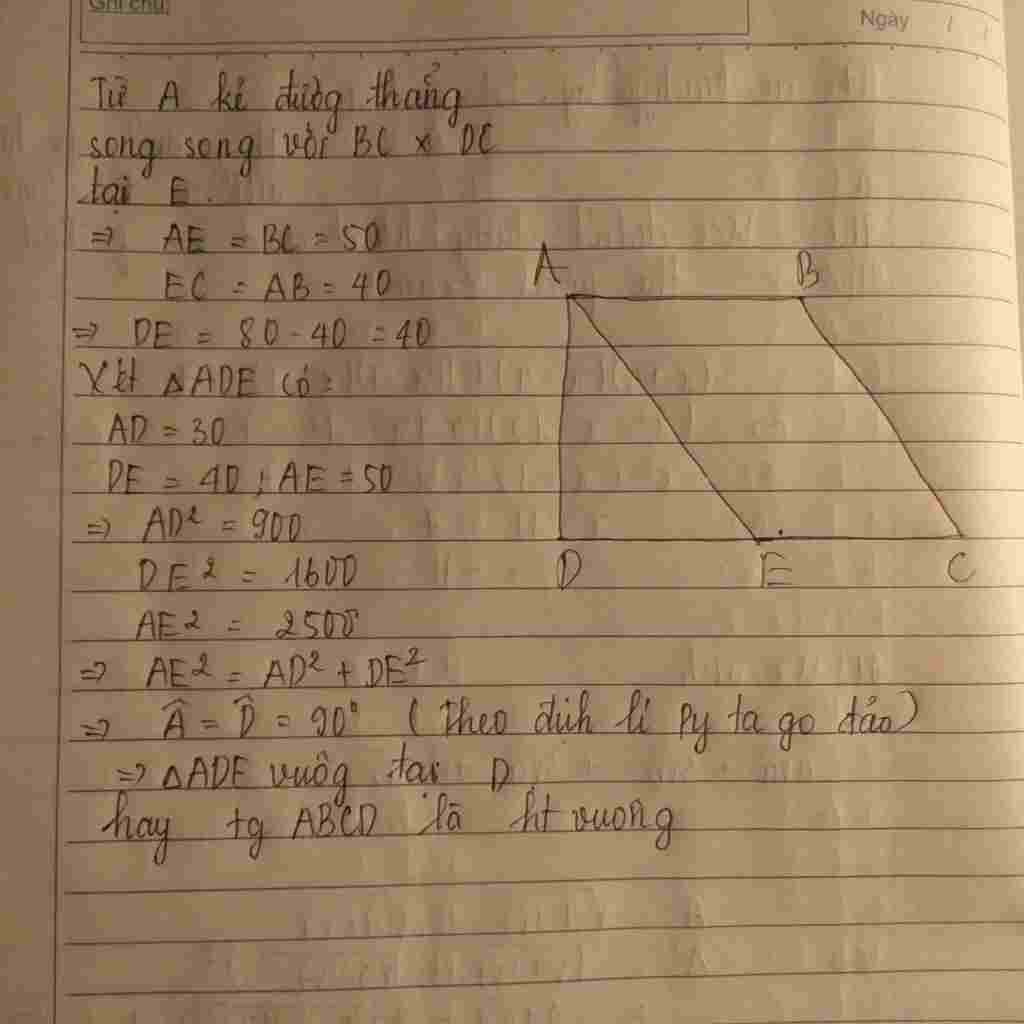 Ghi chú:
Ngày / /
Từ A kẻ đường thẳng
song song với BC x DC
tại E.
=> AE = BC = 50
EC = AB = 40
=> DE = 80 - 40 = 40
Xét △ADE có:
AD = 30
DE = 40 ; AE = 50
=> AD² = 900
DE² = 1600
AE² = 2500
=> AE² = AD² + DE²
=> Â = D̂ = 90° (Theo định lí Py ta go đảo)
=> △ADE vuôg tại D
hay tg ABCD là ht vuông
A B
D E C